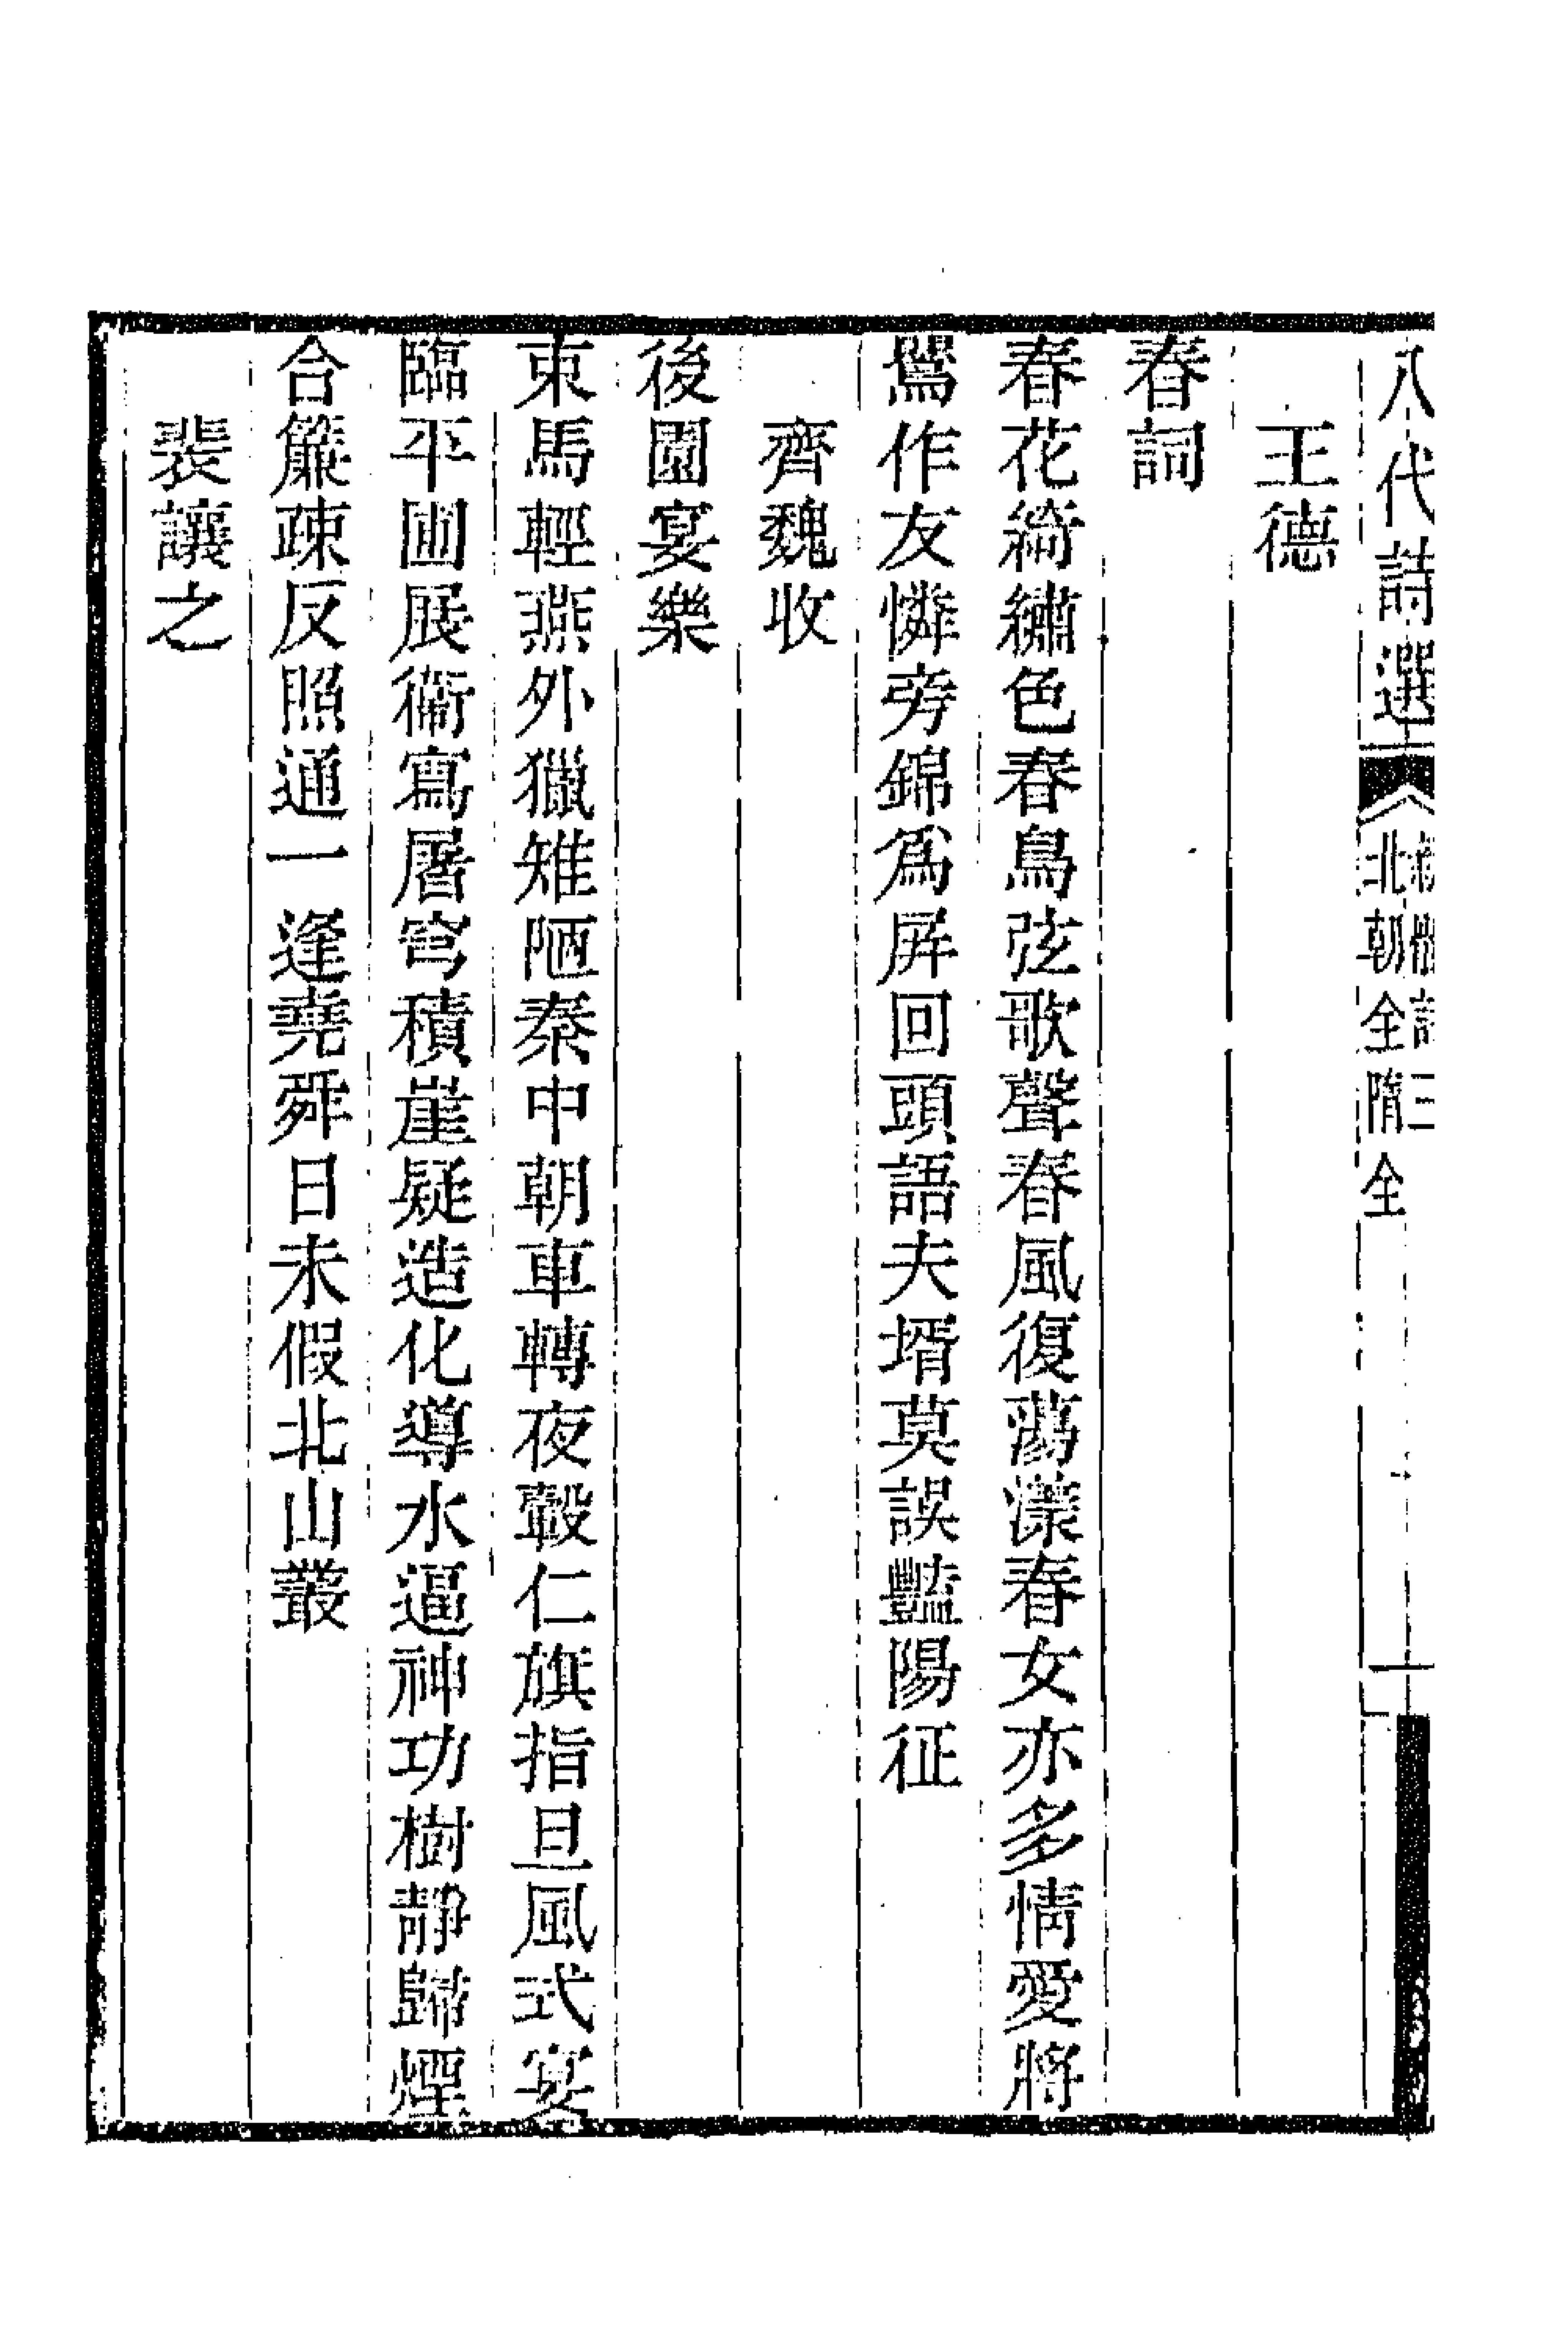 八代詩選
新體詩三
北朝全隋全
王德
春詞
春花綺繡色春鳥弦歌聲春風復蕩漾春女亦多情愛將
鶯作友憐旁錦爲屏回頭語夫壻莫誤豔陽征
齊魏收
後園宴樂
束馬輕燕外獵雉陋秦中朝車轉夜轂仁旗指旦風式宴
臨平圃展衞寫屠穹積崖疑造化導水逼神功樹靜歸煙
合簾疎反照通一逢堯舜日未假北山叢
裴讓之